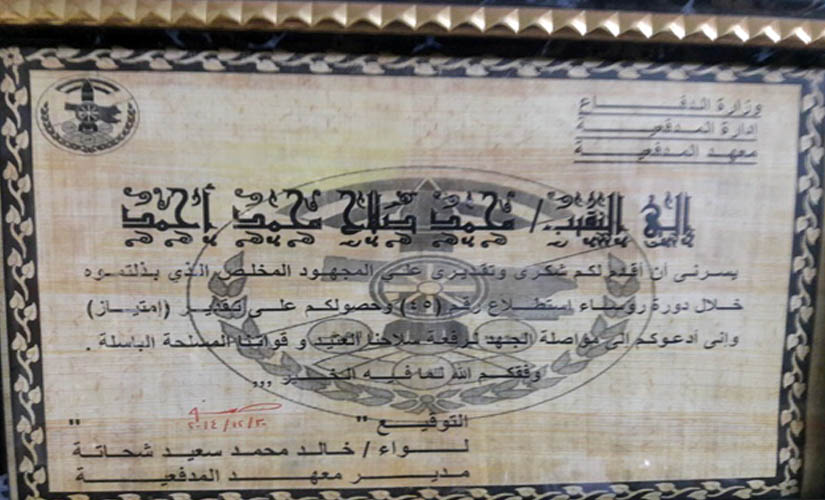 وزارة الدفــــاع
إدارة المدفعيـــة
معهد المدفعيـــة
إلى النقيب/ محمد صلاح محمد أحمد
يسرنى أن أقدم لكم شكرى وتقديرى على المجهود المخلص الذي بذلتمـوه
خلال دورة رؤساء استطلاع رقم (٤٥) وحصولكم على تقدير (إمتياز)
وإنى أدعوكم إلى مواصلة الجهد لرفعة سلاحنا العتيد و قواتنا المسلحة الباسلة .
وفقكم الله لما فيه الخير ,,,
التوقيع " "
٢٠١٤/١٢/٢٠
لـــواء / خالد محمد سعيد شحاتة
مديـــر معهـــد المدفعيـــة